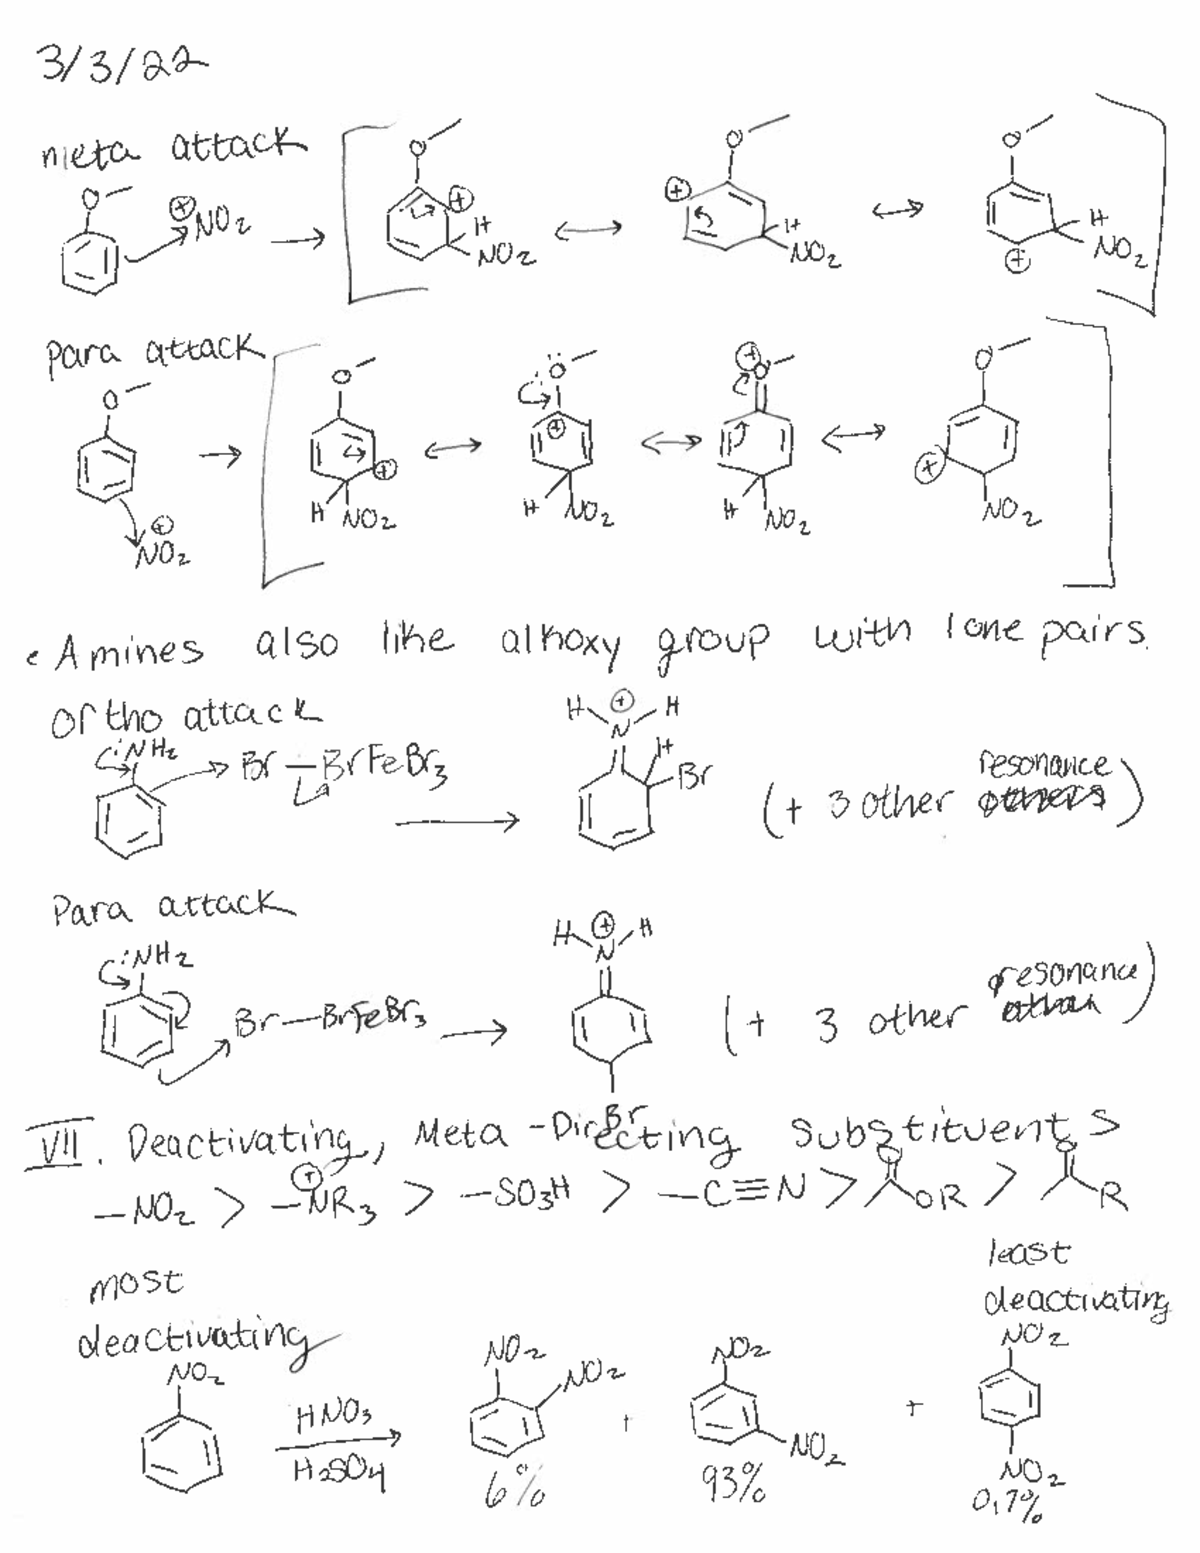 3/3/22
meta attack
O ⊕NO2 → O ⊕ H NO2 ↔ O ⊕ H NO2 ↔ O H NO2 ⊕
Para attack
O ⊕ NO2 → O ⊕ H NO2 ↔ :Ö ⊕ H NO2 ↔ ⊕ O H NO2 ↔ O ⊕ NO2
• Amines also like alkoxy group with lone pairs.
ortho attack
:NH2 Br—BrFeBr3 → H ⊕ N H H Br (+ 3 other resonance)
Para attack
:NH2 Br—BrFeBr3 → H ⊕ N H Br (+ 3 other resonance)
VII. Deactivating, Meta-Directing Substituents
—NO2 > —⊕NR3 > —SO3H > —C≡N > O OR > O R
most deactivating
least deactivating
NO2 HNO3 H2SO4 → NO2 NO2 + NO2 NO2 + NO2 NO2
6% 93% 0.7%